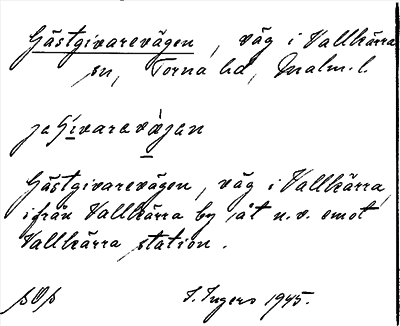 Gästgivarevägen, väg i Vallkärra
sn, Torna hd, Malm. l.
jaʃivarevägan
Gästgivarevägen, väg i Vallkärra,
ifrån Vallkärra by åt n.v. emot
Vallkärra station.
I. Ingers 1945.